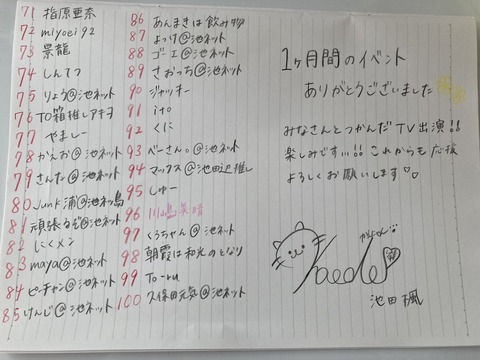 71 指原亜奈
72 miyoei92
73 景龍
74 しんてつ
75 りょう@池ネット
76 TO箱推しアキヲ
77 やましー
78 かえお@池ネット
79 さんた@池ネット
80 Junk浦@池ネッ島
81 頑張るぞ@池ネット
82 にくメン
83 maya@池ネット
84 ピーチャン@池ネット
85 けんじ@池ネット
86 あんまきは飲み物
87 よっけ@池ネット
88 ゴーエ@池ネット
89 さおっち@池ネット
90 ジャッキー
91 ito
92 くに
93 べーさん。@池ネット
94 マックス@池田迅推し
95 しゅー
96 川嶋美晴
97 くろちゃん@池ネット
98 朝霞は和光のとなり
99 To-ru
100 久保田元気@池ネット
1ヶ月間のイベント
ありがとうございました
みなさんとつかんだTV出演!!
楽しみですっ!! これからも応援
よろしくお願いします♡。
Kaede
池田楓